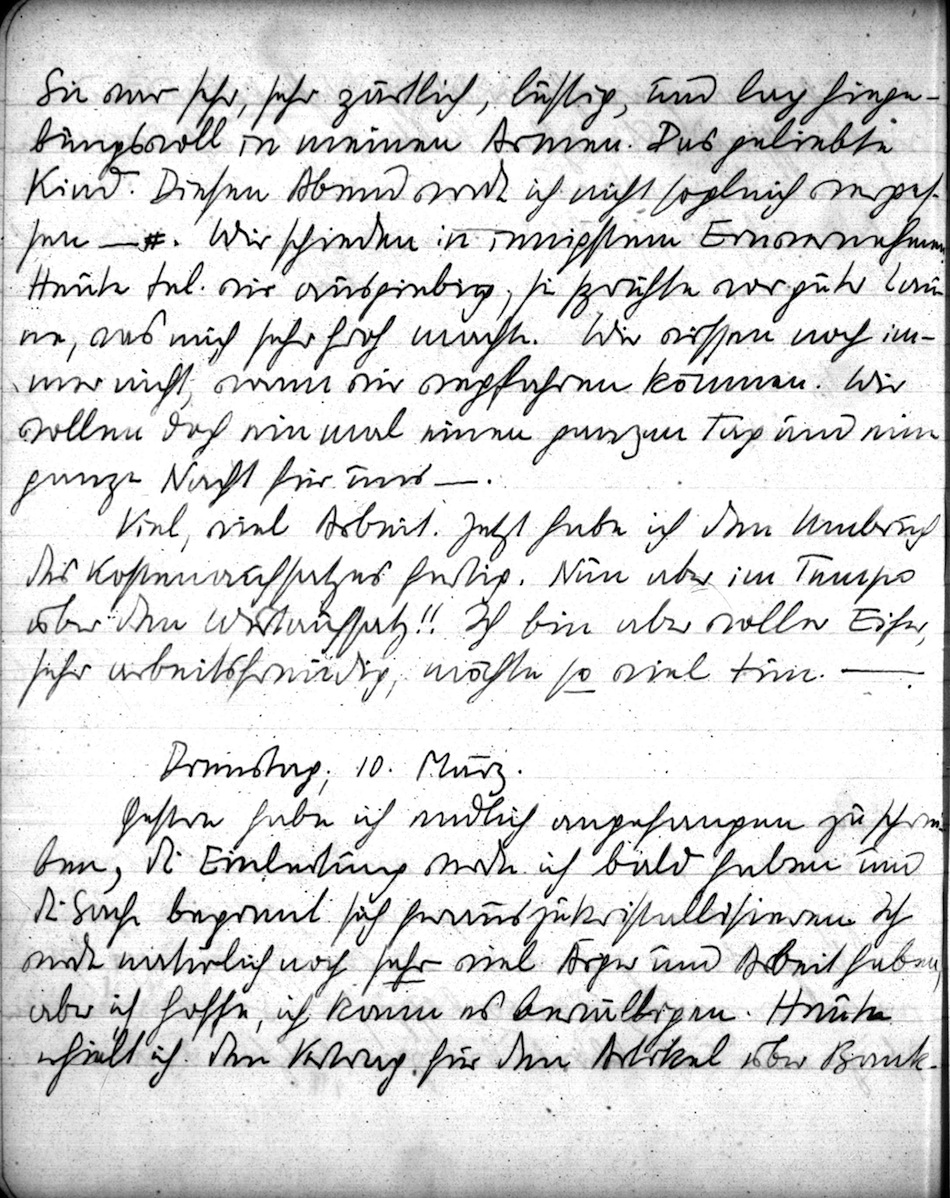 Sie war sehr, sehr zärtlich, lustig, und lag hinge-
bungsvoll in meinen Armen. Das geliebte
Kind. Diesen Abend werde ich nicht sogleich verges-
sen —. Wir schieden in innigstem Einvernehmen
Heute tel. wir ausgiebig, sie sprühte vor guter Lau
ne, was mich sehr froh machte. Wir wissen noch im-
mer nicht, wann wir wegfahren können. Wir
wollen doch einmal einen ganzen Tag und eine
ganze Nacht für uns —.
Viel, viel Arbeit. Jetzt habe ich den Umbruch
des Kostenaufsatzes fertig. Nun aber im Tempo
über den Wertaufsatz!! Ich bin aber voller Eifer,
sehr arbeitsfreudig, möchte so viel tun. —.
Dienstag, 10. März.
Gestern habe ich endlich angefangen zu schrei
ben, die Einleitung werde ich bald haben und
die Sache beginnt sich herauszukristallisieren. Ich
werde natürlich noch sehr viel Ärger und Arbeit haben,
aber ich hoffe, ich kann es bewältigen. Heute
erhielt ich den Vertrag für den Artikel über Bank-